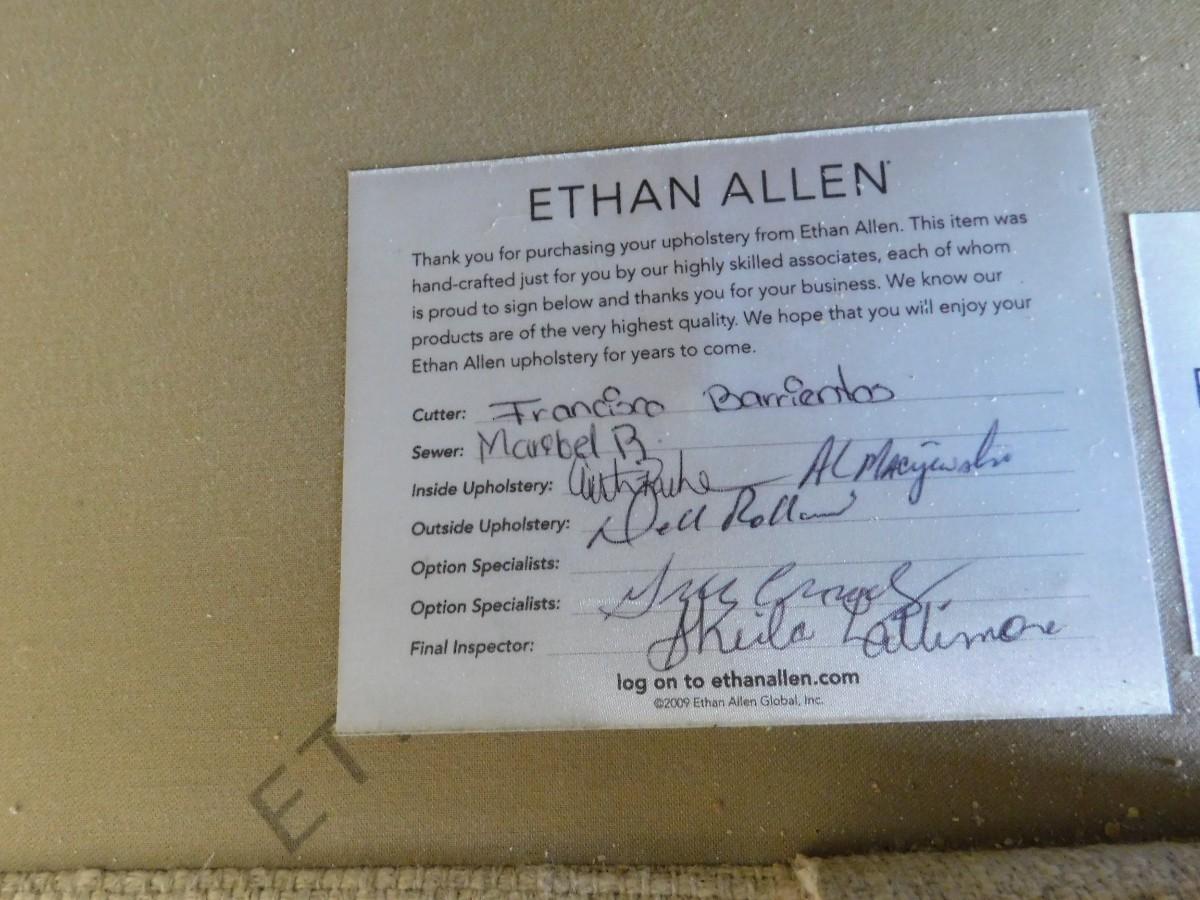 ETHAN ALLEN
Thank you for purchasing your upholstery from Ethan Allen. This item was
hand-crafted just for you by our highly skilled associates, each of whom
is proud to sign below and thanks you for your business. We know our
products are of the very highest quality. We hope that you will enjoy your
Ethan Allen upholstery for years to come.
Cutter: Francisco Barrientos
Sewer: Maribel R.
Inside Upholstery: AL Macijewski
Outside Upholstery: Dell Rolland
Option Specialists:
Option Specialists:
Final Inspector: Sheila Lattimore
log on to ethanallen.com
©2009 Ethan Allen Global, Inc.
ET